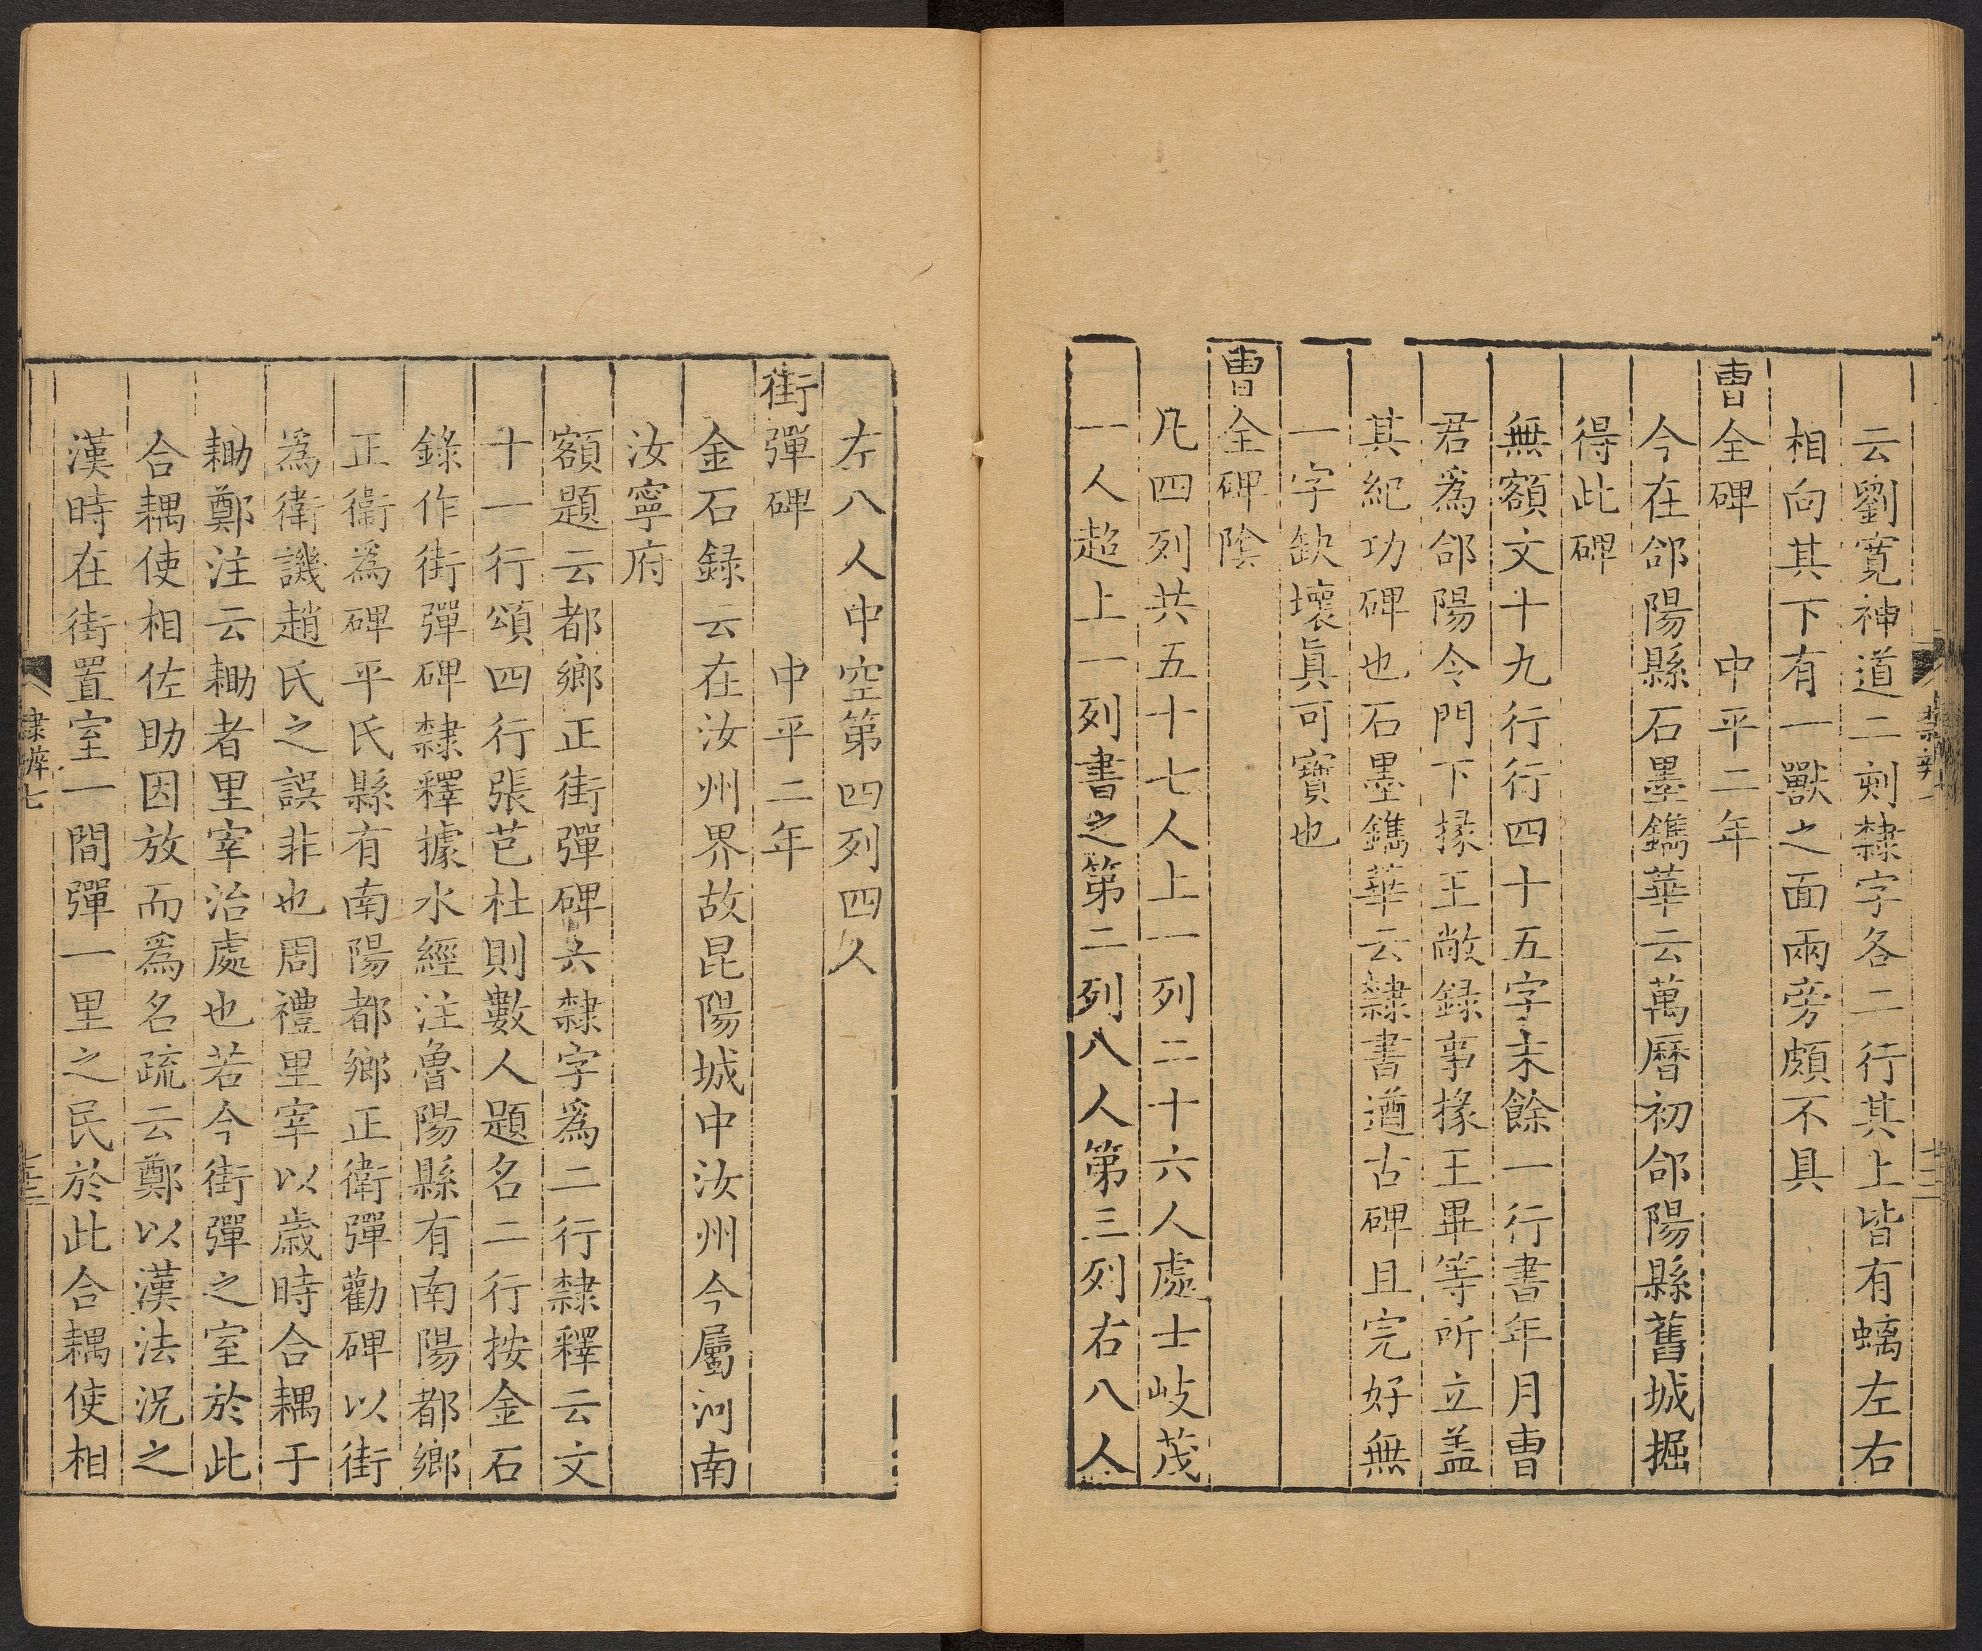 云劉寬神道二刻隸字各二行其上皆有螭左右
相向其下有一獸之面兩旁頗不具
曹全碑 中平二年
今在郃陽縣石墨鐫華云萬曆初郃陽縣舊城掘
得此碑
無額文十九行行四十五字末餘一行書年月曹
君爲郃陽令門下掾王敞録事掾王畢等所立盖
其紀功碑也石墨鐫華云隸書遒古碑且完好無
一字缺壞眞可寶也
曹全碑陰
凡四列共五十七人上一列二十六人處士岐茂
一人超上一列書之第二列八人第三列右八人
左八人中空第四列四人
街彈碑 中平二年
金石録云在汝州界故昆陽城中汝州今屬河南
汝寧府
額題云都鄉正街彈碑六隸字爲二行隸釋云文
十一行頌四行張芭杜則數人題名二行按金石
錄作街彈碑隸釋據水經注魯陽縣有南陽都鄉
正衞爲碑平氏縣有南陽都鄉正衛彈勸碑以街
爲衛譏趙氏之誤非也周禮里宰以歲時合耦于
耡鄭注云耡者里宰治處也若今街彈之室於此
合耦使相佐助因放而爲名疏云鄭以漢法況之
漢時在街置室一間彈一里之民於此合耦使相
隸辨七